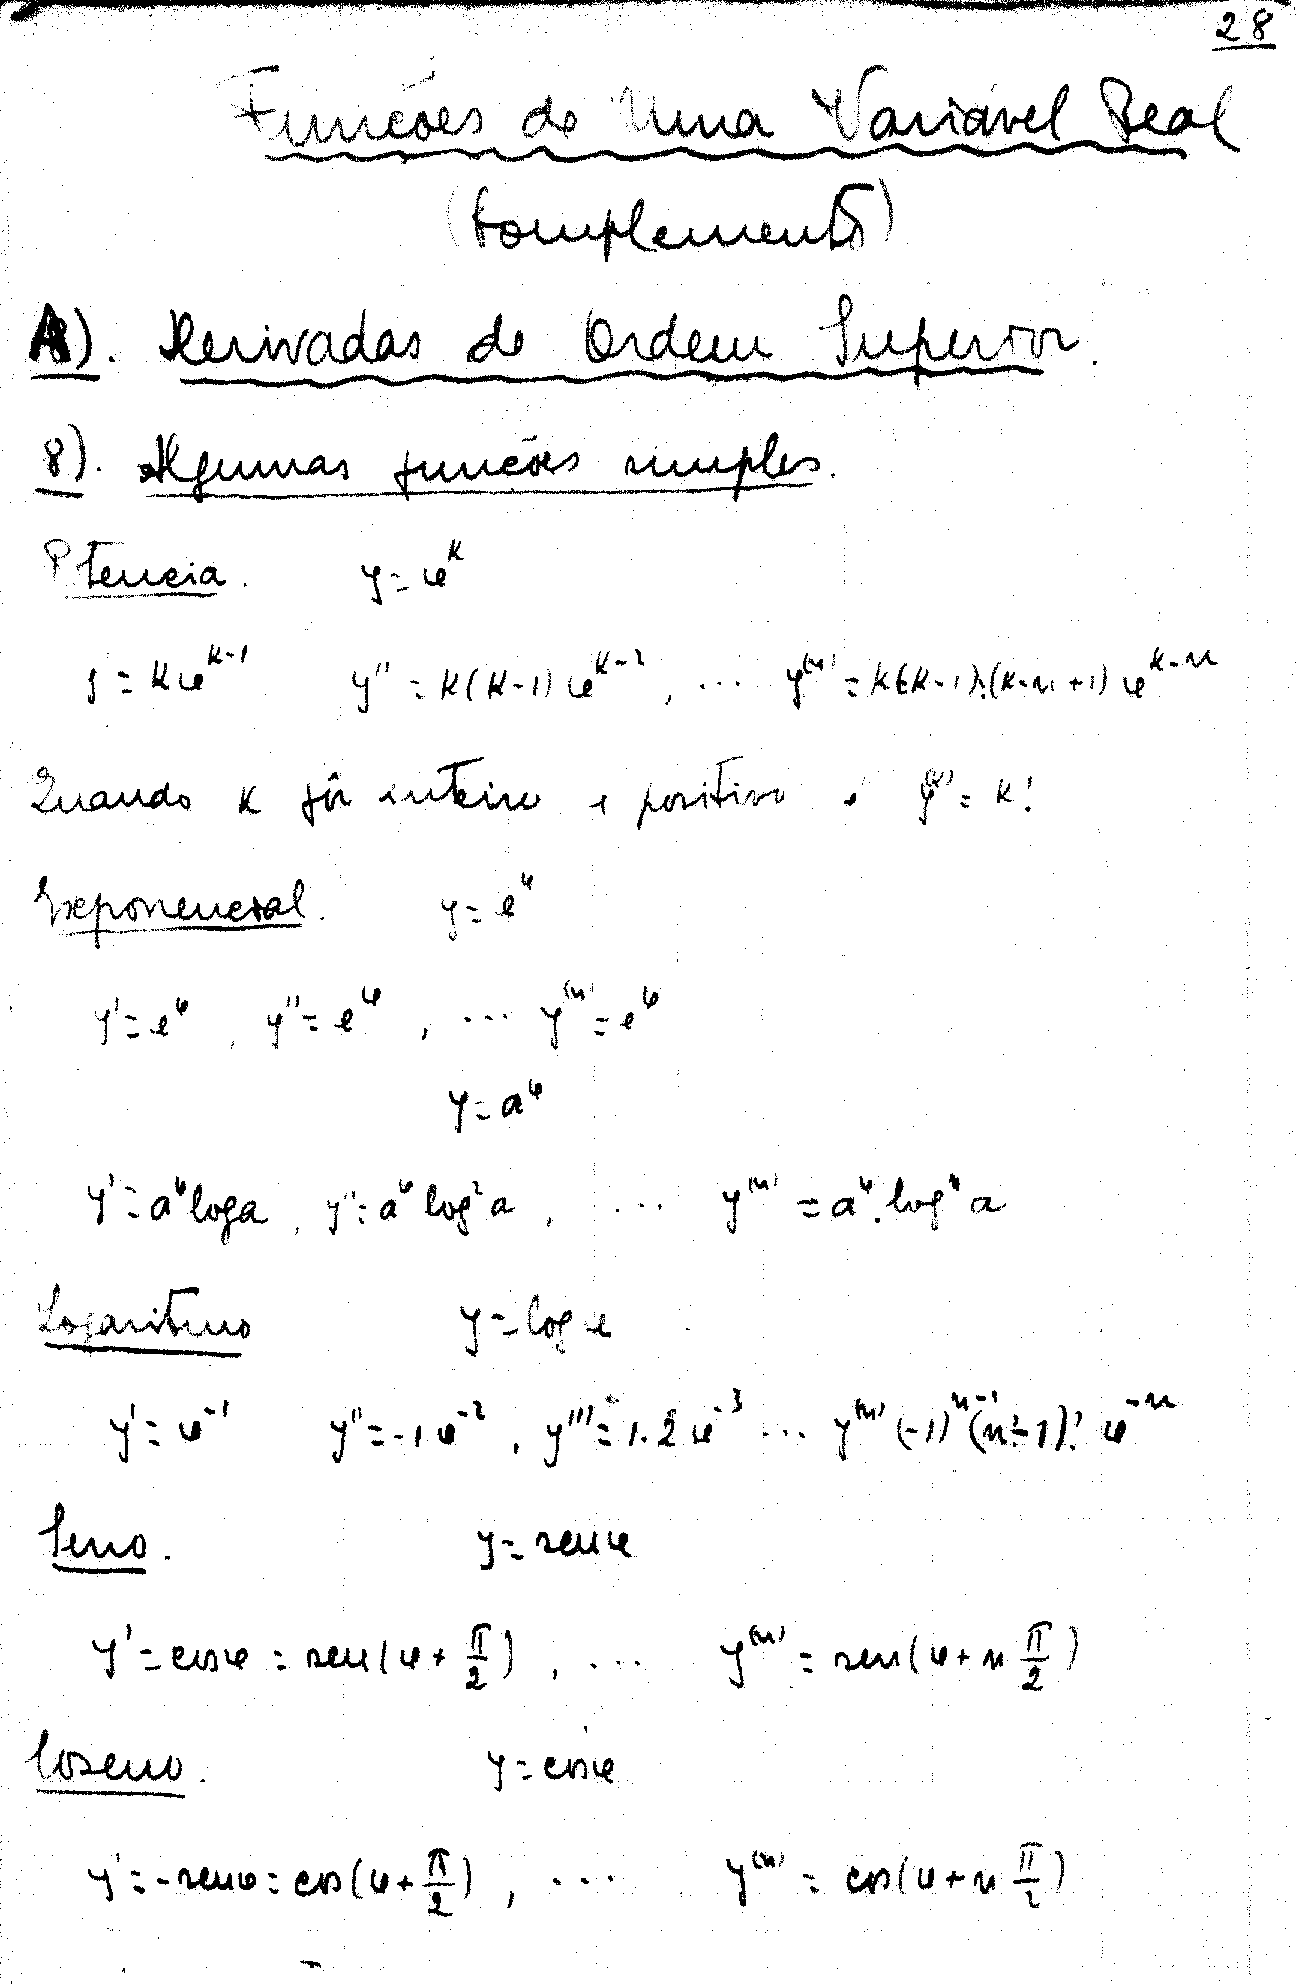 28
Funções de Uma Variável Real
(Complementos)
A). Derivadas de Ordem Superior.
8). Algumas funções simples.
Potencia. y = x^k
y' = kx^{k-1} y'' = k(k-1)x^{k-2}, ... y^{(n)} = k(k-1)...(k-n+1) x^{k-n}
Quando k fôr inteiro e positivo é y^{(k)} = k!
Exponencial. y = e^x
y' = e^x, y'' = e^x, ... y^{(n)} = e^x
y = a^x
y' = a^x log a, y'' = a^x log^2 a, ... y^{(n)} = a^x . log^n a
Logaritmo y = log x
y' = x^{-1} y'' = -1 x^{-2}, y''' = 1.2 x^{-3} ... y^{(n)} (-1)^{n-1} (n-1)! x^{-n}
Seno. y = sen x
y' = cos x = sen(x + π/2), ... y^{(n)} = sen(x + n π/2)
Coseno. y = cos x
y' = -sen x = cos(x + π/2), ... y^{(n)} = cos(x + n π/2)